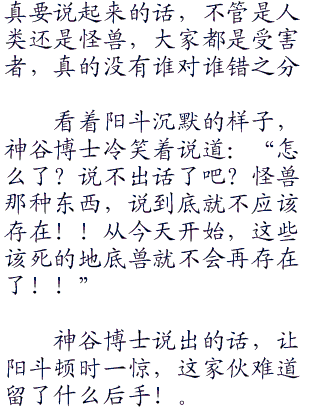 真要说起来的话，不管是人
类还是怪兽，大家都是受害
者，真的没有谁对谁错之分
看着阳斗沉默的样子，
神谷博士冷笑着说道：“怎
么了？说不出话了吧？怪兽
那种东西，说到底就不应该
存在！！从今天开始，这些
该死的地底兽就不会再存在
了！！”
神谷博士说出的话，让
阳斗顿时一惊，这家伙难道
留了什么后手！。